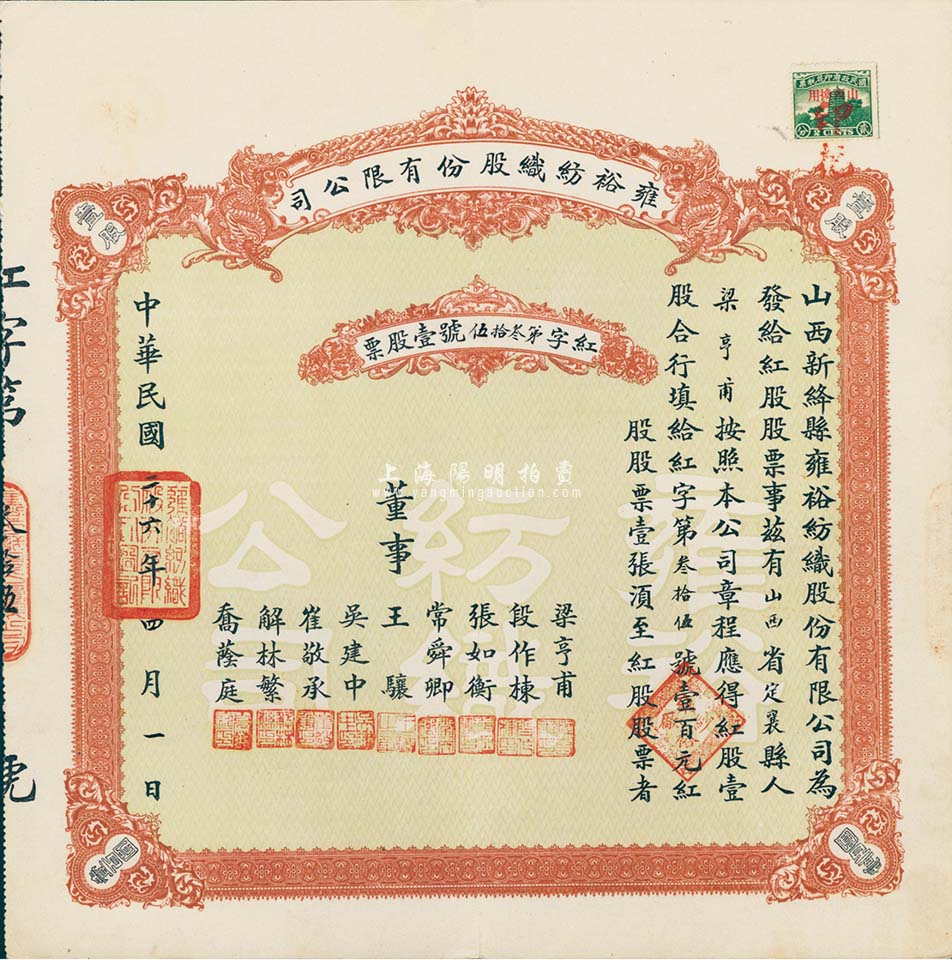 雍裕紡織股份有限公司
紅字第叁拾伍號壹股票
山西新絳縣雍裕紡織股份有限公司為
發給紅股股票事茲有山西省定襄縣人
梁亨甫按照本公司章程應得紅股壹
股合行填給紅字第叁拾伍號壹百元紅
股股票壹張湏至紅股股票者
董事
梁亨甫
段作棟
張如衡
常舜卿
王驤
吳建中
崔敬承
解林繁
喬蔭庭
中華民國二十六年四月一日
壹股
壹股
雍裕紡織公司
上海陽明拍賣
www.yangmingauction.com
2 CENTS